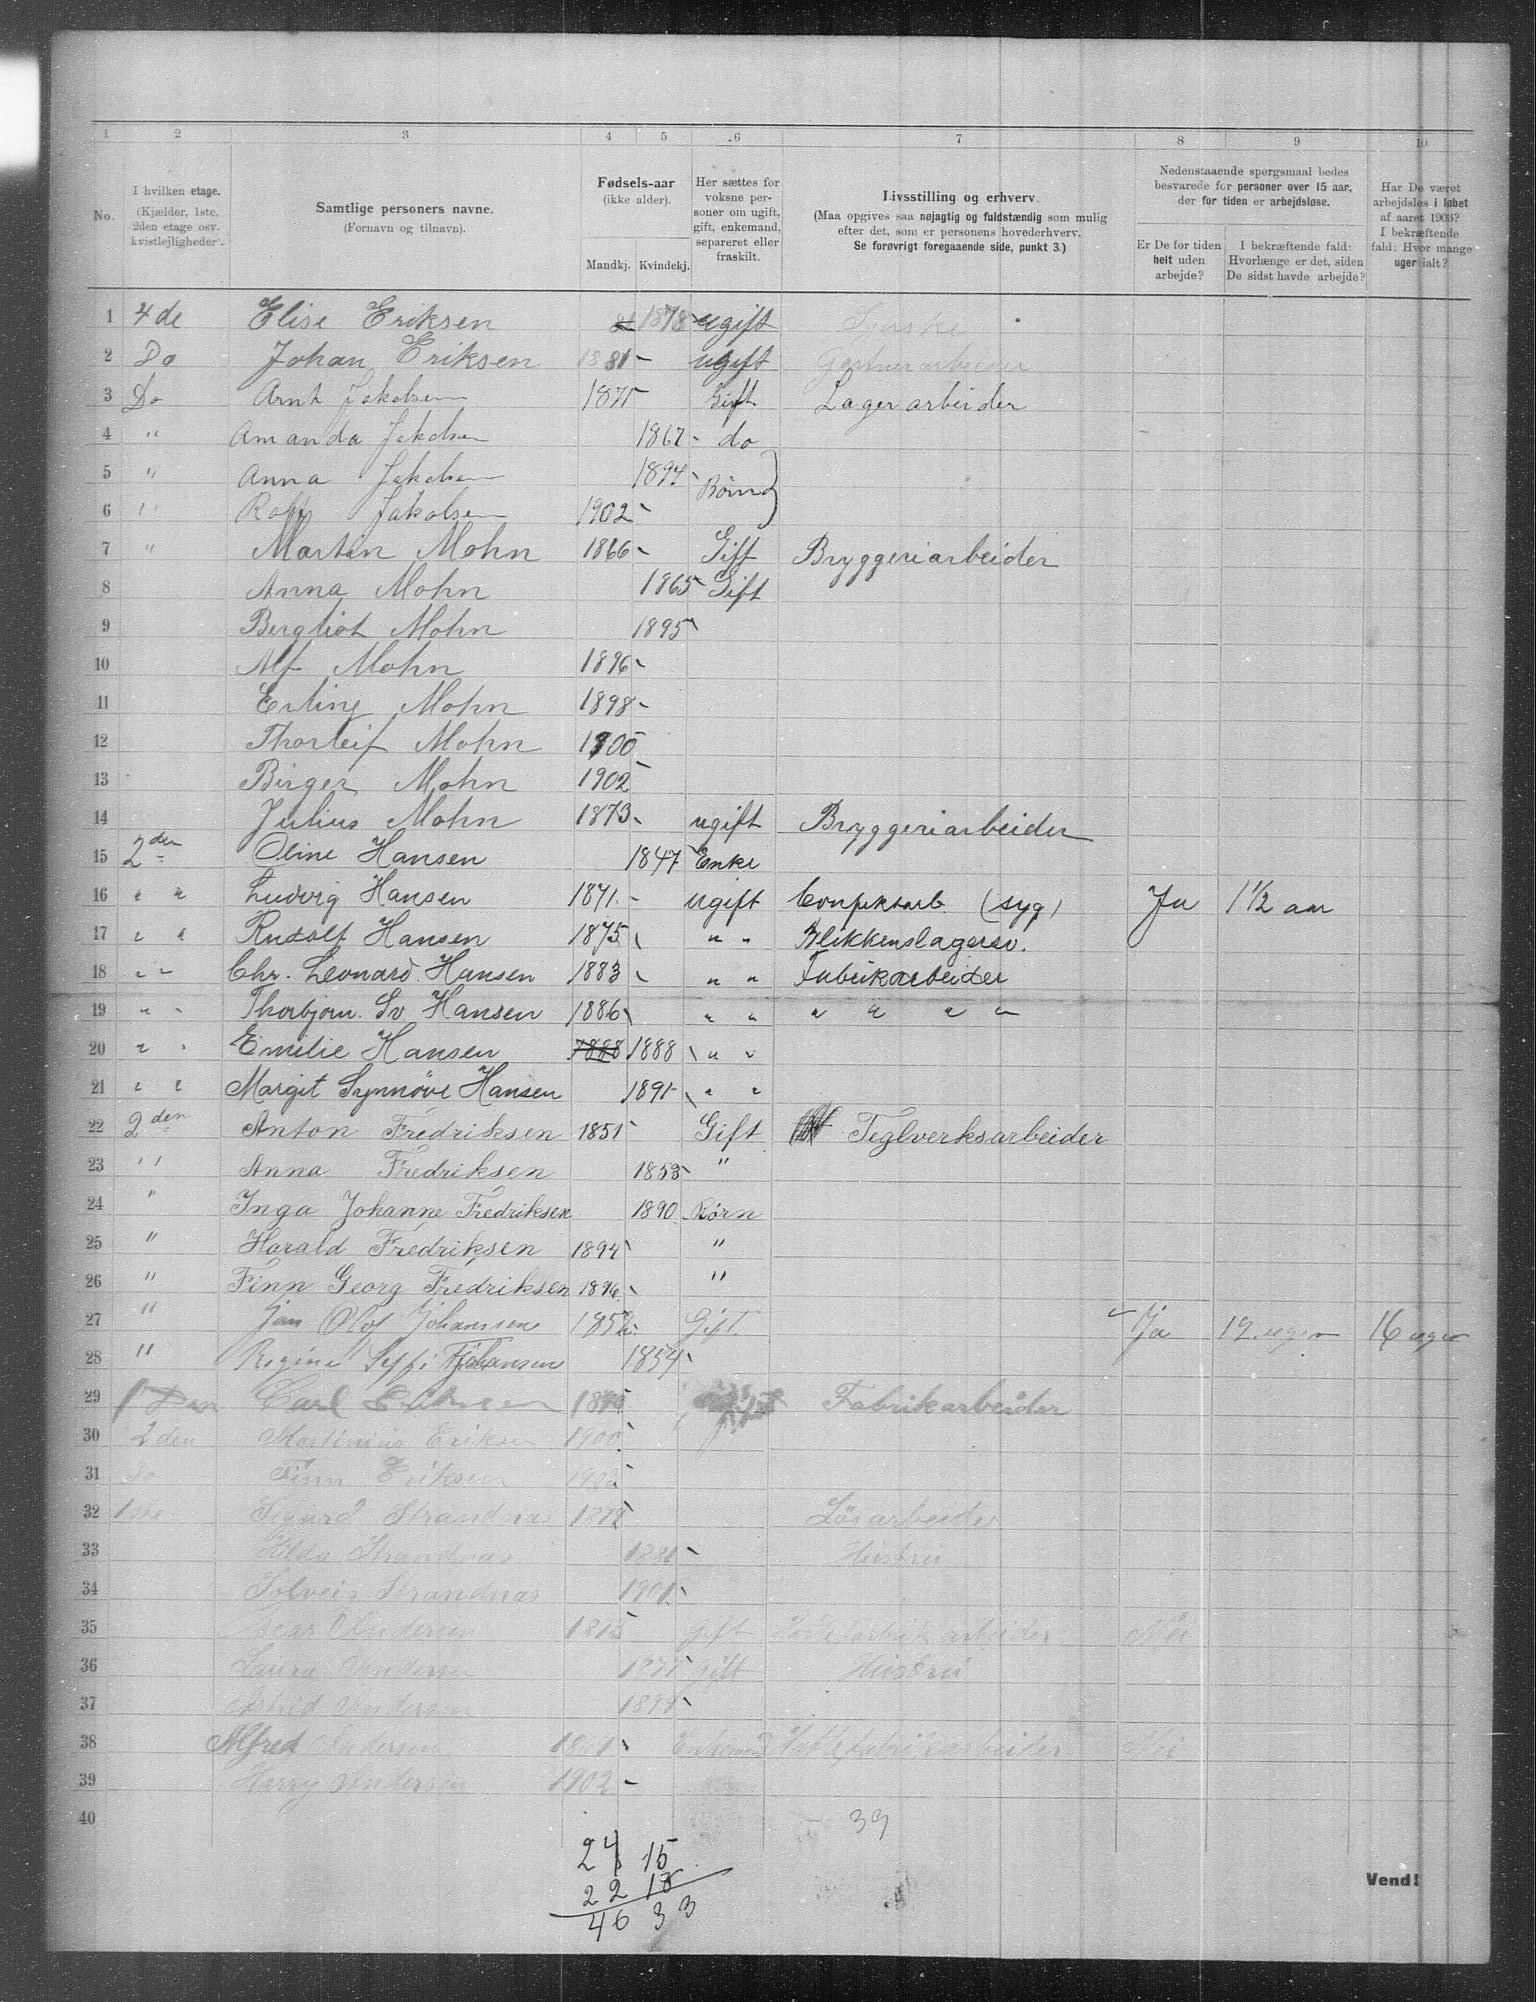 1 2 3 4 5 6 7 8 9 10
No.
I hvilken etage. (Kjælder, 1ste, 2den etage osv. kvistlejligheder).
Samtlige personers navne. (Fornavn og tilnavn).
Fødsels-aar (ikke alder).
Mandkj. Kvindekj.
Her sættes for voksne personer om ugift, gift, enkemand, separeret eller fraskilt.
Livsstilling og erhverv.
(Maa opgives saa nøjagtig og fuldstændig som mulig efter det, som er personens hovederhverv.
Se forøvrigt foregaaende side, punkt 3.)
Nedenstaaende spørgsmaal bedes besvarede for personer over 15 aar, der for tiden er arbejdsløse.
Er De for tiden helt uden arbejde?
I bekræftende fald: Hvorlænge er det, siden De sidst havde arbejde?
Har De været arbejdsløs i løbet af aaret 1903? I bekræftende fald: Hvor mange uger ialt?
1 4 de Elise Eriksen 1878 ugift
2 Do Johan Eriksen 1881 - ugift Gartnerarbeider
3 Do Arnt Jakobsen 1871 Gift Lagerarbeider
4 " Amanda Jakobsen 1867 - do
5 " Anna Jakobsen 1894 Børn
6 " Jakobsen 1902
7 " Martin Mohn 1866 - Gift Bryggeriarbeider
8 Anna Mohn 1865 Gift
9 Bergliot Mohn 1895
10 Alf Mohn 1896
11 Erling Mohn 1898
12 Thorleif Mohn 1900
13 Birger Mohn 1902
14 Julius Mohn 1873 ugift Bryggeriarbeider
15 2den Oline Hansen 1847 Enke
16 " " Ludvig Hansen 1871 - ugift Confektarb. (syg) Ja 1 1/2 aar
17 " " Rudolf Hansen 1875 " " Blikkenslagersv.
18 " " Chr. Leonard Hansen 1883 " " Fabrikarbeider
19 " " Thorbjørn Sv. Hansen 1886 " " " " " "
20 " " Emilie Hansen 1888 1888 " "
21 " " Margit Synnöve Hansen 1891 " "
22 2den Anton Fredriksen 1851 Gift Teglverksarbeider
23 " Anna Fredriksen 1853 "
24 " Inga Johanne Fredriksen 1890 Børn
25 " Harald Fredriksen 1894 "
26 " Finn Georg Fredriksen 1896 "
27 " Olof Johansen 1852 Gift. Ja 12 uger 16 uger
28 " Regine Johansen 1854
29 Carl Fabrikarbeider
30 2den Martinius Eriksen 1900
31 Do Finn Eriksen
32 1ste Sigurd Strandnas Løsarbeider
33 Hilda Strandnas Hustru
34 Solveig Strandnas 1901
35 Andersen gift arbeider Nei
36 Laura Andersen gift Hustru
37 Astrid Andersen 1899
38 Alfred Andersen Enkemand Hattefabrikarbeider Nei
39 Harry Andersen 1902 -
40
39
24 15
22 18
46 33
Vend!